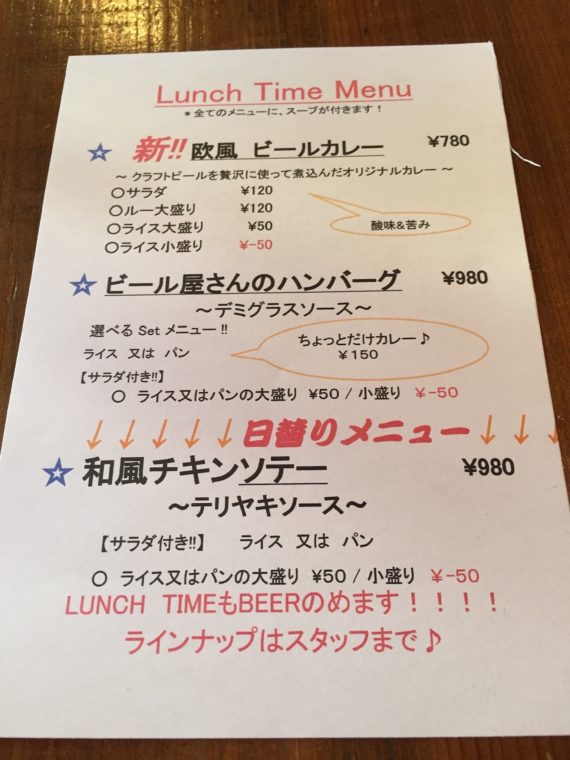 Lunch Time Menu
*全てのメニューに、スープが付きます!
☆ 新!! 欧風 ビールカレー ¥780
~ クラフトビールを贅沢に使って煮込んだオリジナルカレー ~
○サラダ ¥120
○ルー大盛り ¥120
○ライス大盛り ¥50
○ライス小盛り ¥-50
酸味&苦み
☆ ビール屋さんのハンバーグ ¥980
~デミグラスソース~
選べる Set メニュー!!
ライス 又は パン
ちょっとだけカレー♪
¥150
【サラダ付き!!】
○ ライス又はパンの大盛り ¥50 / 小盛り ¥-50
↓↓↓↓↓日替りメニュー↓↓↓
☆ 和風チキンソテー ¥980
~テリヤキソース~
【サラダ付き!!】 ライス 又は パン
○ ライス又はパンの大盛り ¥50 / 小盛り ¥-50
LUNCH TIMEもBEERのめます!!!!
ラインナップはスタッフまで♪